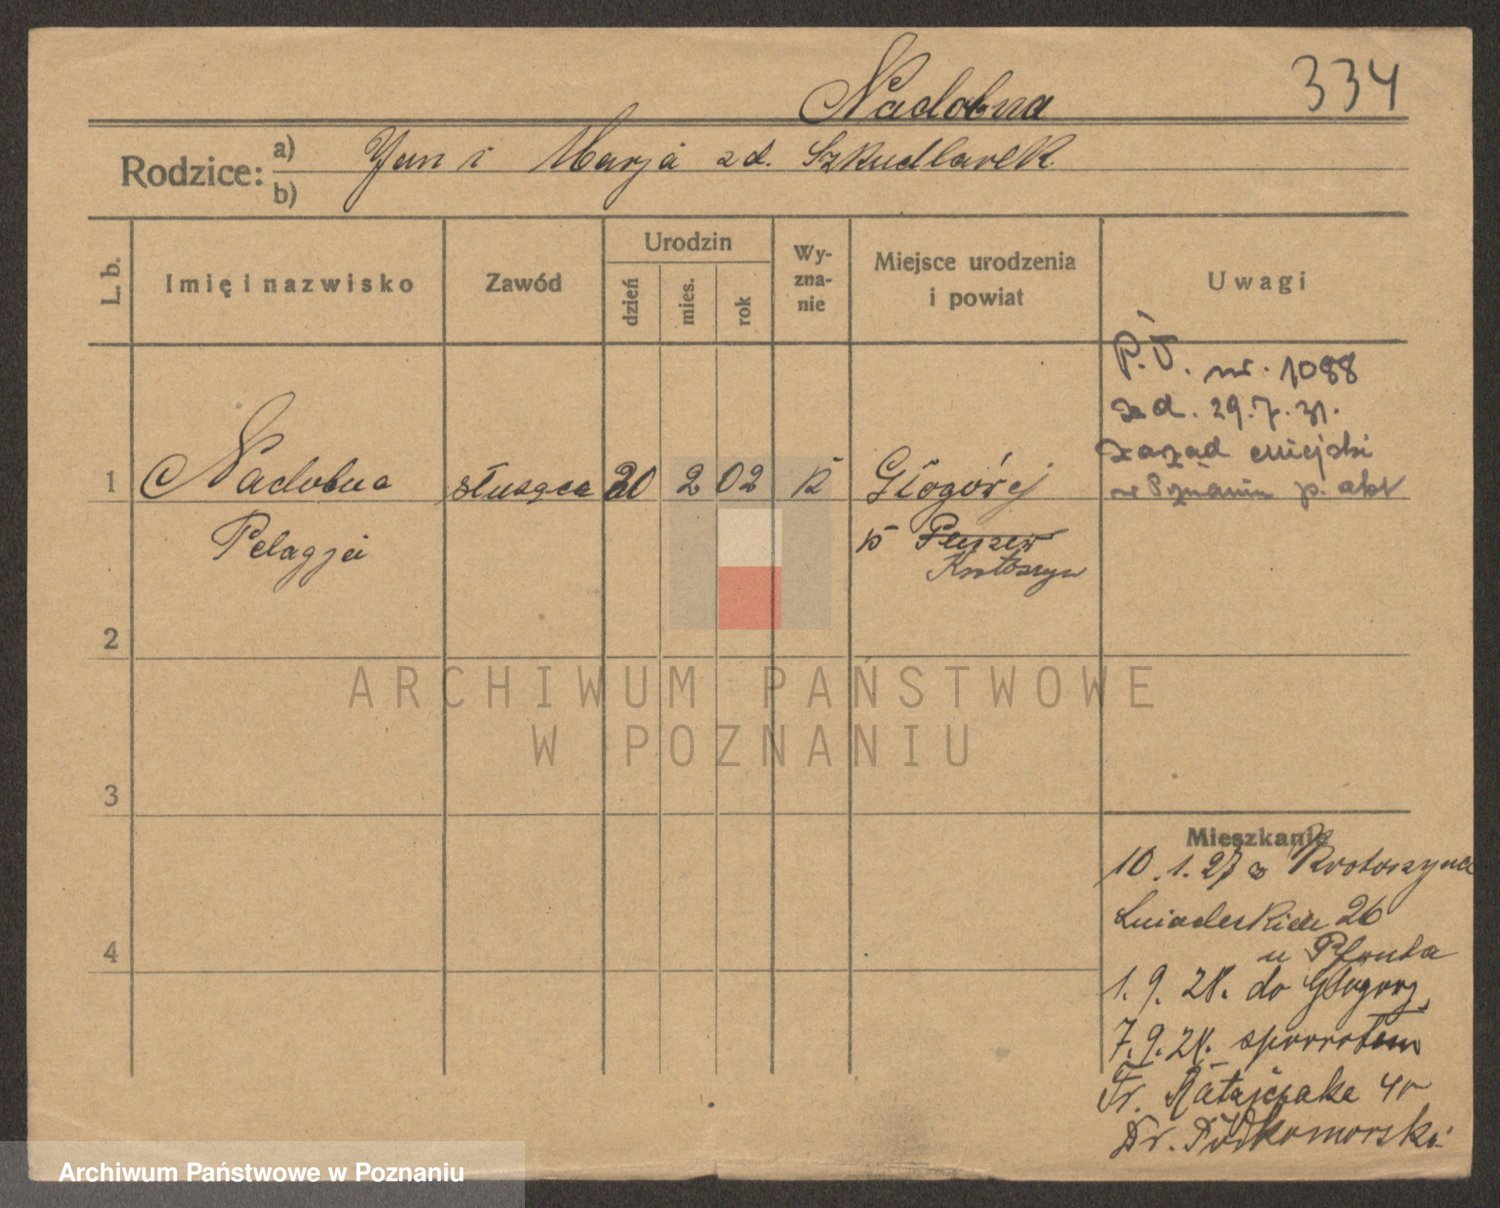 Nadobna
334
Rodzice: a) Jan i Marja zd. Szkudlarek
b)
L. b.
Imię i nazwisko
Zawód
Urodzin
dzień
mies.
rok
Wy-
zna-
nie
Miejsce urodzenia
i powiat
Uwagi
P. T. nr. 1088
zd. 29.7.31.
zarząd miejski
w Poznaniu p. akt
1 Nadobna służąca 20 2 02 k Głogórej
Pelagja
p Pleszew
Krotoszyn
2
3
4
ARCHIWUM PAŃSTWOWE
W POZNANIU
Mieszkanie
10.1.27 z Krotoszyna
Śniadeckich 26
u
1. 9. 28. do Głogorej
7. 9. 28. spowrotem
Fr. Ratajczaka 40
Dr. Podkomorski
Archiwum Państwowe w Poznaniu